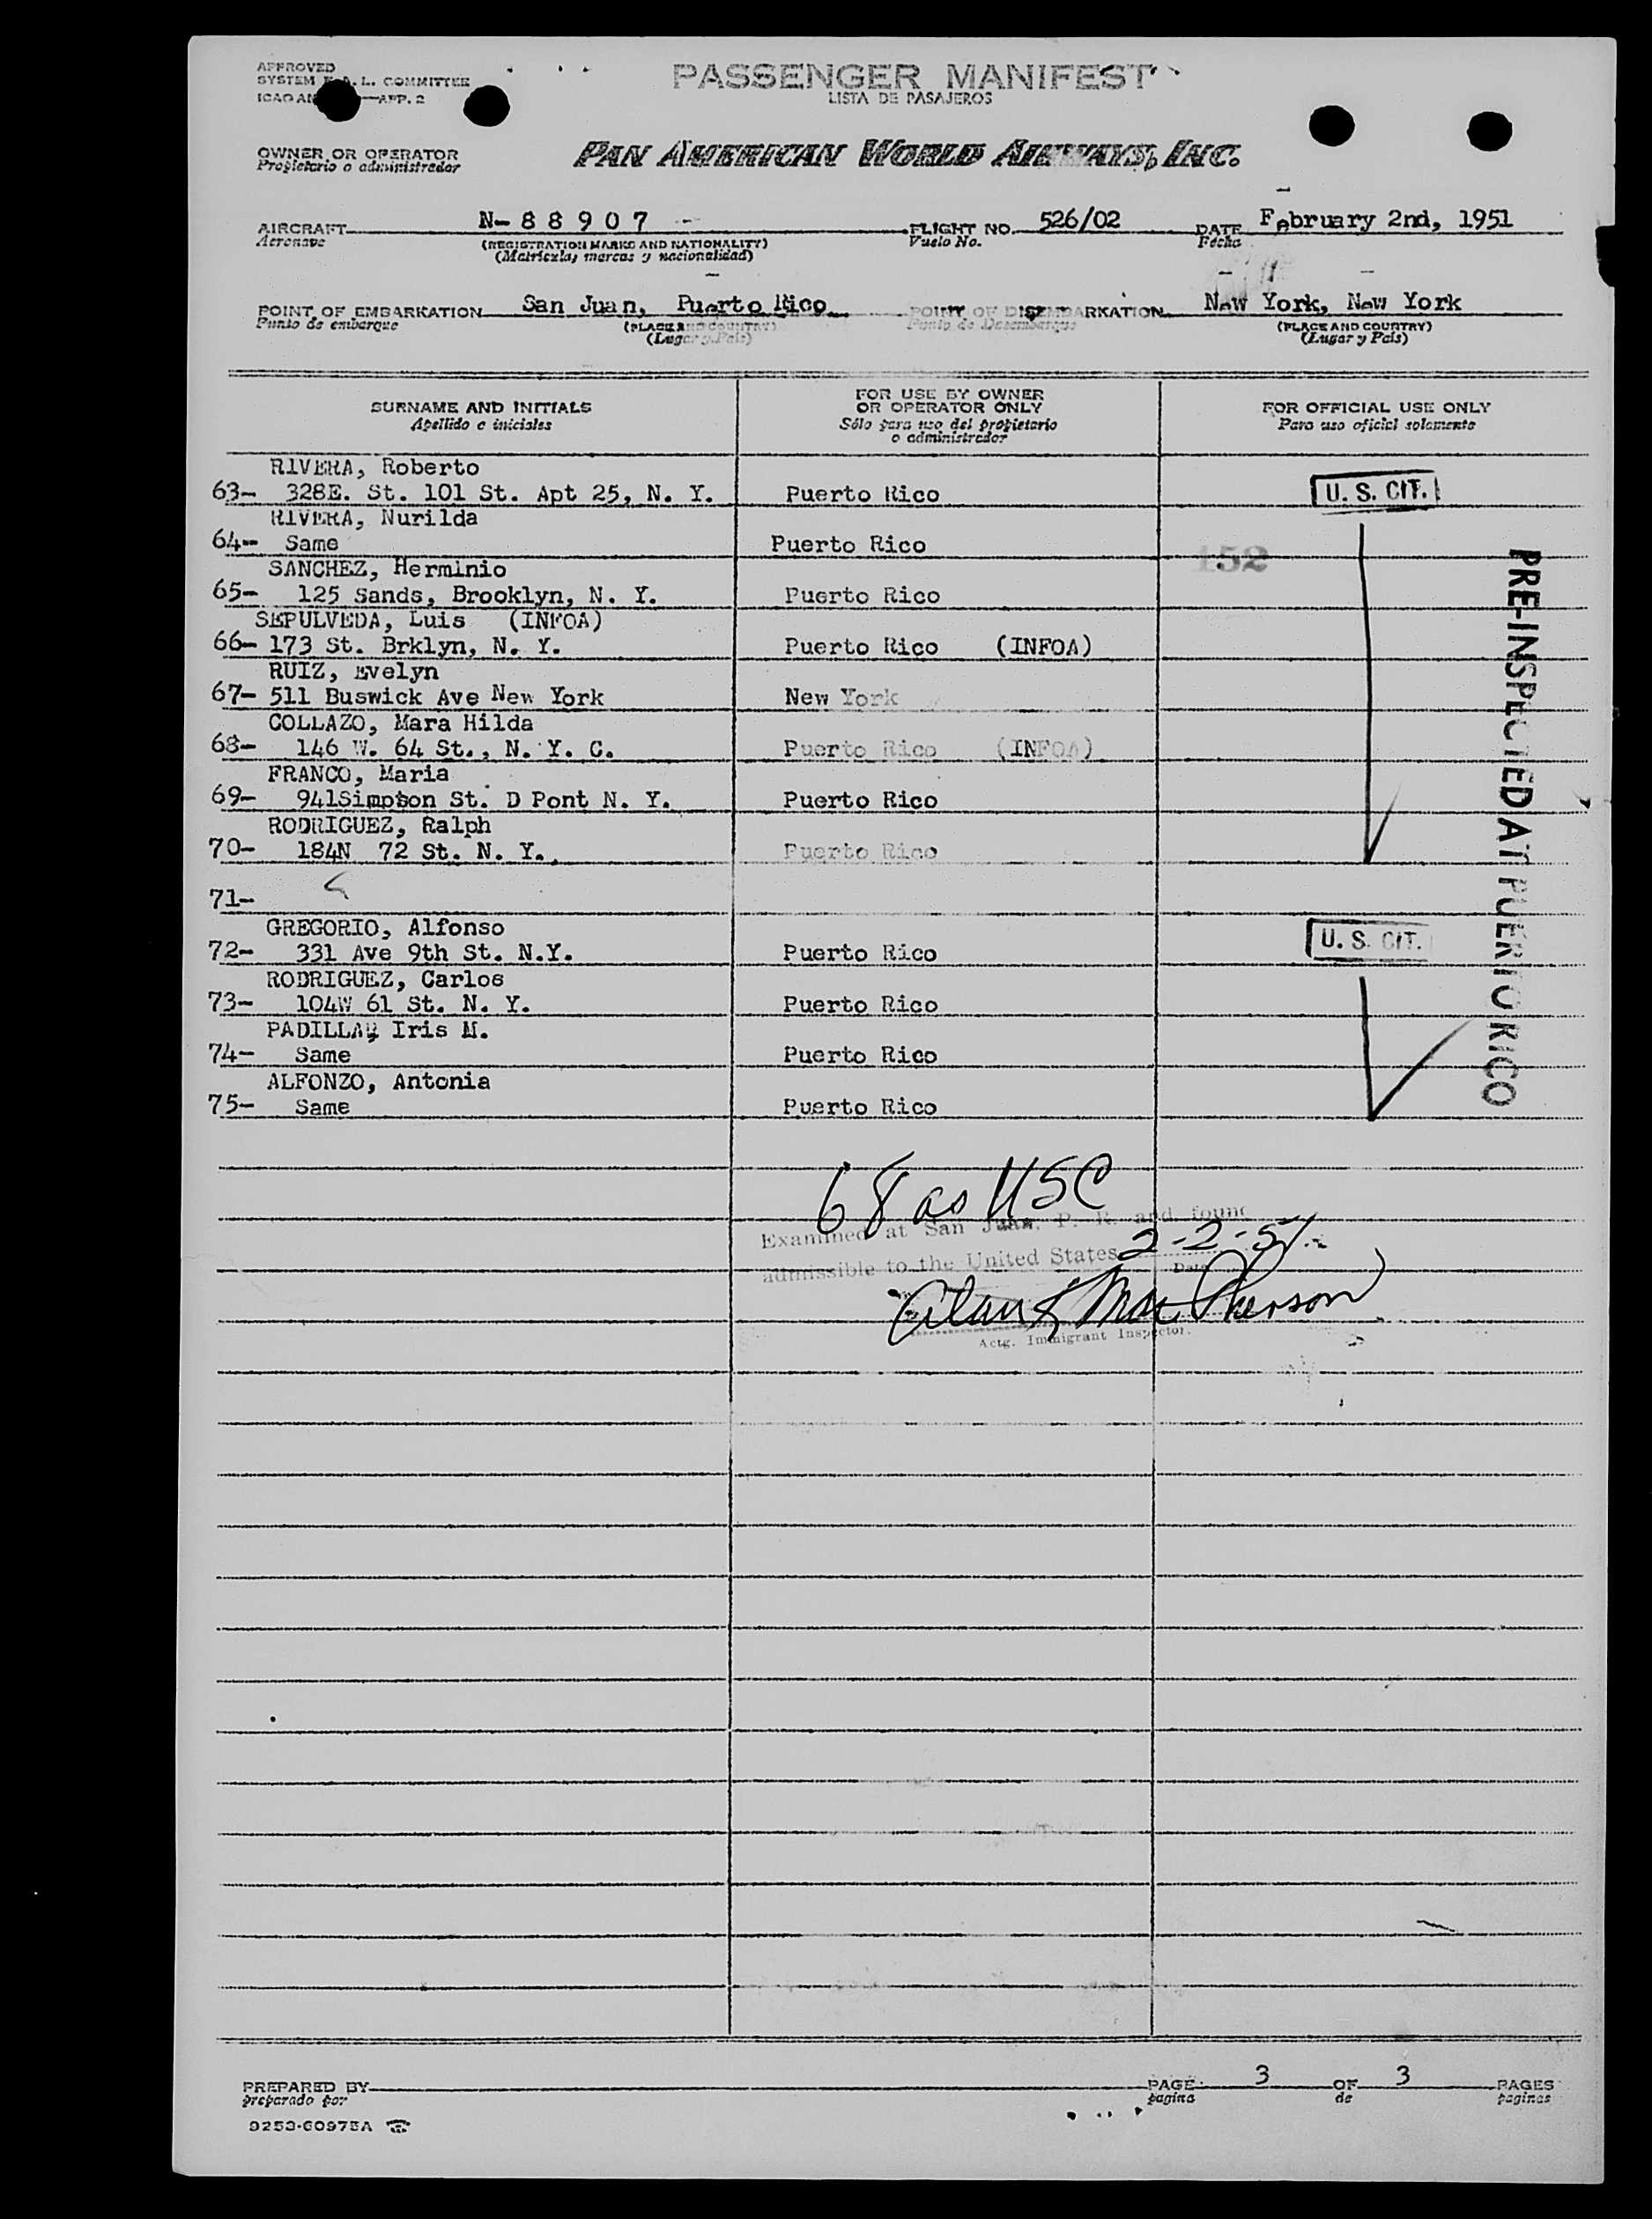 APPROVED
SYSTEM F. A. L. COMMITTEE
ICAO AN —APP. 2
PASSENGER MANIFEST
LISTA DE PASAJEROS
OWNER OR OPERATOR
Propietario o administrador
PAN AMERICAN WORLD AIRWAYS, INC.
AIRCRAFT N-88907 FLIGHT NO. 526/02 DATE February 2nd, 1951
Aeronave (REGISTRATION MARKS AND NATIONALITY) Vuelo No. Fecha
(Matricula, marcas y nacionalidad)
POINT OF EMBARKATION San Juan, Puerto Rico POINT OF DISEMBARKATION New York, New York
Punto de embarque (PLACE AND COUNTRY) Punto de Desembarque (PLACE AND COUNTRY)
(Lugar y Pais) (Lugar y Pais)
SURNAME AND INITIALS
Apellido e iniciales
FOR USE BY OWNER
OR OPERATOR ONLY
Sólo para uso del propietario
o administrador
FOR OFFICIAL USE ONLY
Para uso oficial solamente
RIVERA, Roberto
63- 328E. St. 101 St. Apt 25, N. Y. Puerto Rico U. S. CIT.
RIVERA, Nurilda
64- Same Puerto Rico 152
SANCHEZ, Herminio
65- 125 Sands, Brooklyn, N. Y. Puerto Rico
SEPULVEDA, Luis (INFOA)
66- 173 St. Brklyn, N. Y. Puerto Rico (INFOA)
RUIZ, Evelyn
67- 511 Buswick Ave New York New York
COLLAZO, Mara Hilda
68- 146 W. 64 St., N. Y. C. Puerto Rico (INFOA)
FRANCO, Maria
69- 941Simpson St. D Pont N. Y. Puerto Rico
RODRIGUEZ, Ralph
70- 184N 72 St. N. Y. Puerto Rico
71-
GREGORIO, Alfonso
72- 331 Ave 9th St. N.Y. Puerto Rico U. S. CIT.
RODRIGUEZ, Carlos
73- 104W 61 St. N. Y. Puerto Rico
PADILLA, Iris M.
74- Same Puerto Rico
ALFONZO, Antonia
75- Same Puerto Rico
PRE-INSPECTED AT PUERTO RICO
68 as USC
Examined at San Juan, P. R. and found
admissible to the United States 2-2-51
Date
Alan MacPherson
Actg. Immigrant Inspector.
PREPARED BY PAGE 3 OF 3 PAGES
preparado por pagina de paginas
9253-60975A